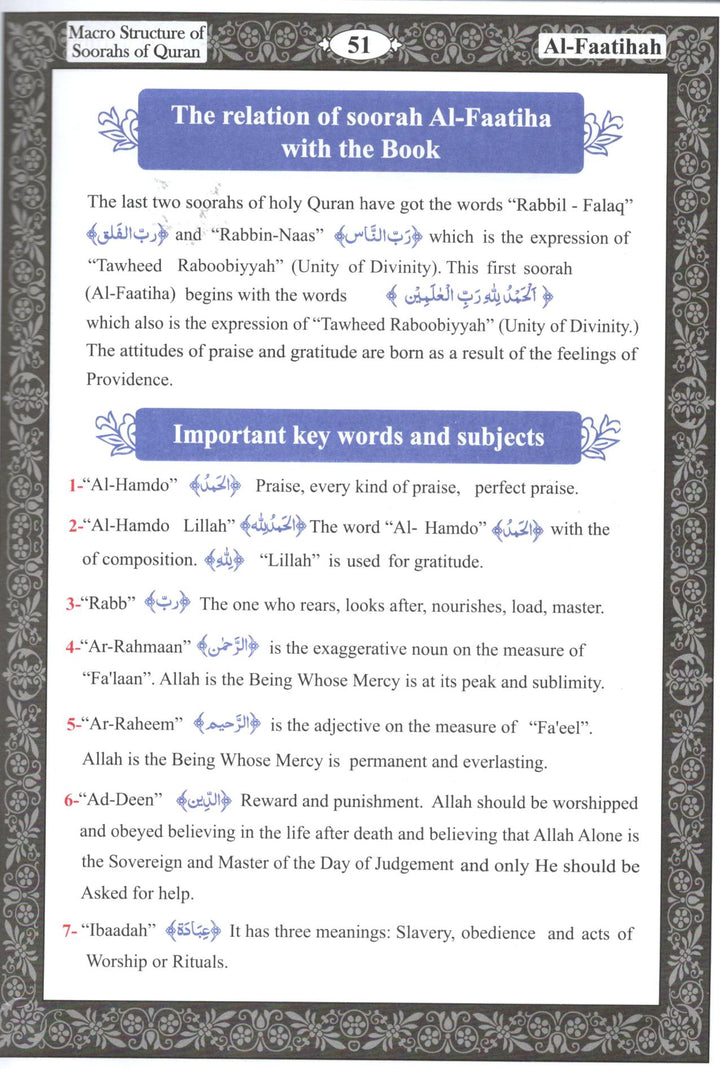 Macro Structure of
Soorahs of Quran
51
Al-Faatihah
The relation of soorah Al-Faatiha
with the Book
The last two soorahs of holy Quran have got the words “Rabbil - Falaq”
﴿ربّ الفلق﴾ and “Rabbin-Naas” ﴿رَبّ النَّاس﴾ which is the expression of
“Tawheed Raboobiyyah” (Unity of Divinity). This first soorah
(Al-Faatiha) begins with the words ﴿ اَلْحَمْدُ لِلّٰهِ رَبِّ الْعٰلَمِيْنَ ﴾
which also is the expression of “Tawheed Raboobiyyah” (Unity of Divinity.)
The attitudes of praise and gratitude are born as a result of the feelings of
Providence.
Important key words and subjects
1-“Al-Hamdo” ﴿الحَمدُ﴾ Praise, every kind of praise, perfect praise.
2-“Al-Hamdo Lillah” ﴿الحَمدُ لِلّٰه﴾ The word “Al- Hamdo” ﴿الحَمدُ﴾ with the
of composition. ﴿لِلّٰهِ﴾ “Lillah” is used for gratitude.
3-“Rabb” ﴿ربّ﴾ The one who rears, looks after, nourishes, load, master.
4-“Ar-Rahmaan” ﴿الرَّحمٰن﴾ is the exaggerative noun on the measure of
“Fa'laan”. Allah is the Being Whose Mercy is at its peak and sublimity.
5-“Ar-Raheem” ﴿الرَّحيم﴾ is the adjective on the measure of “Fa'eel”.
Allah is the Being Whose Mercy is permanent and everlasting.
6-“Ad-Deen” ﴿الدِّين﴾ Reward and punishment. Allah should be worshipped
and obeyed believing in the life after death and believing that Allah Alone is
the Sovereign and Master of the Day of Judgement and only He should be
Asked for help.
7- “Ibaadah” ﴿عِبَادَة﴾ It has three meanings: Slavery, obedience and acts of
Worship or Rituals.